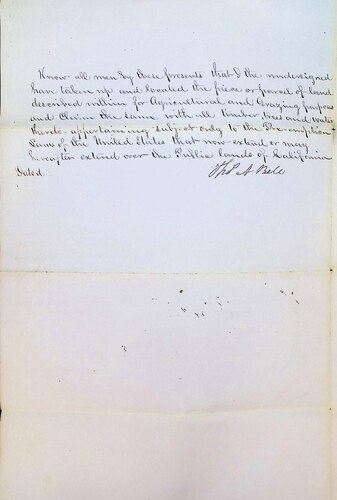 Know all men by these presents that I the undersigned
have taken up and located the piece or parcel of land
described within for Agricultural and Grazing purposes
and Claim the same with all timber, trees and water
thereto appertaining subject only to the Pre-emption
Laws of the United States that now extend or may
hereafter extend over the Public lands of California
Dated
Thos A Bell